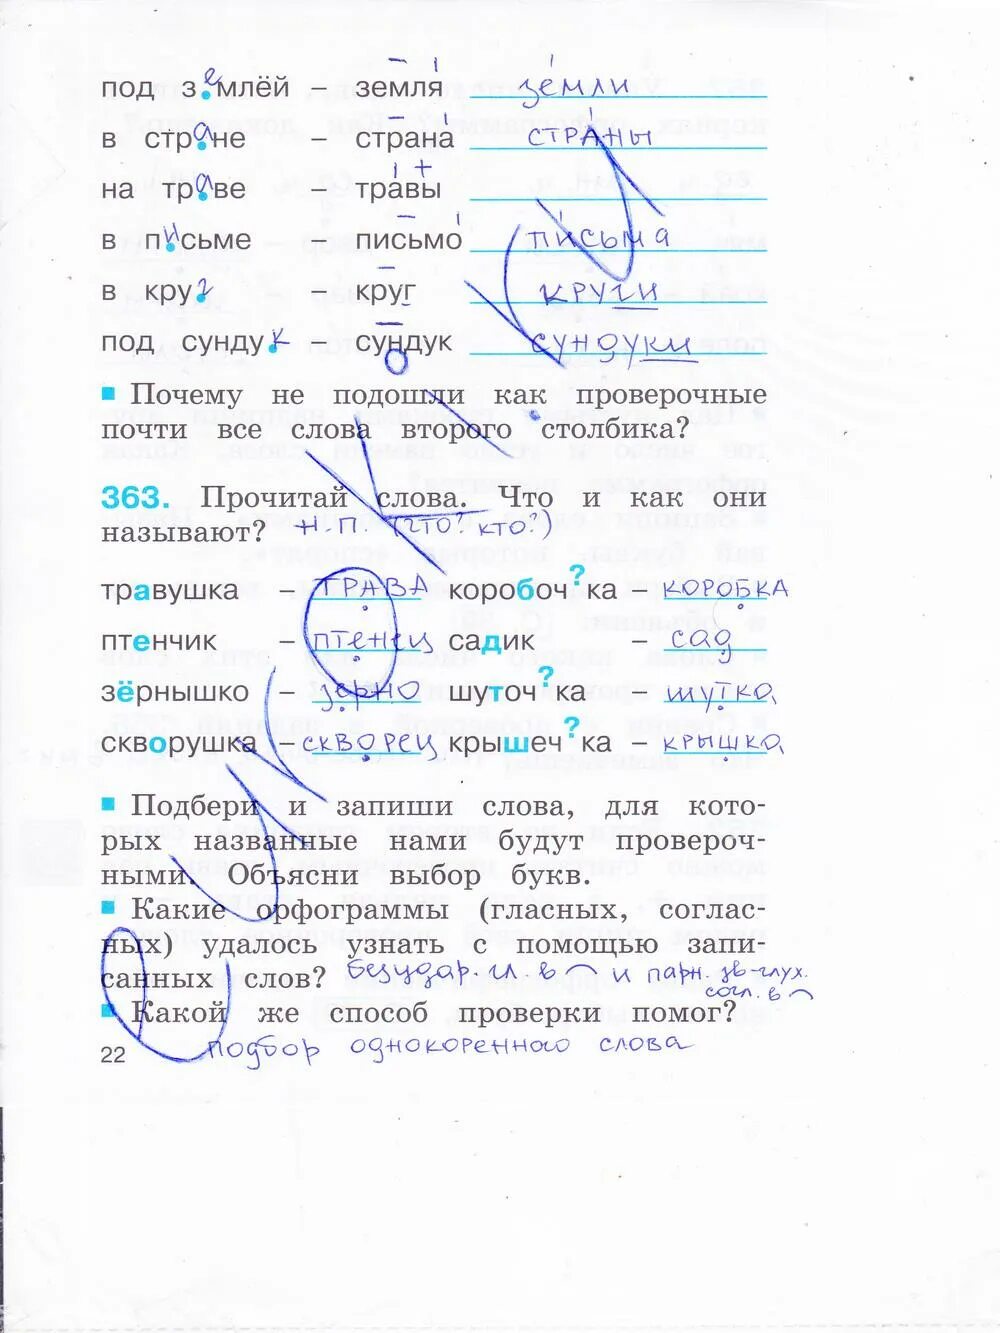 под землёй – земля земли
в стране – страна страны
на траве – травы
в письме – письмо письма
в круг – круг круги
под сундук – сундук сундуки
Почему не подошли как проверочные
почти все слова второго столбика?
363. Прочитай слова. Что и как они
называют? Н.П. (что? кто?)
травушка – трава коробоч?ка – коробка
птенчик – птенец садик – сад
зёрнышко – зерно шуточ?ка – шутка
скворушка – скворец крышеч?ка – крышка
Подбери и запиши слова, для кото-
рых названные нами будут провероч-
ными. Объясни выбор букв.
Какие орфограммы (гласных, соглас-
ных) удалось узнать с помощью запи-
санных слов? безудар. гл. в и парн. зв-глух.
согл. в
Какой же способ проверки помог?
22 подбор однокоренного слова